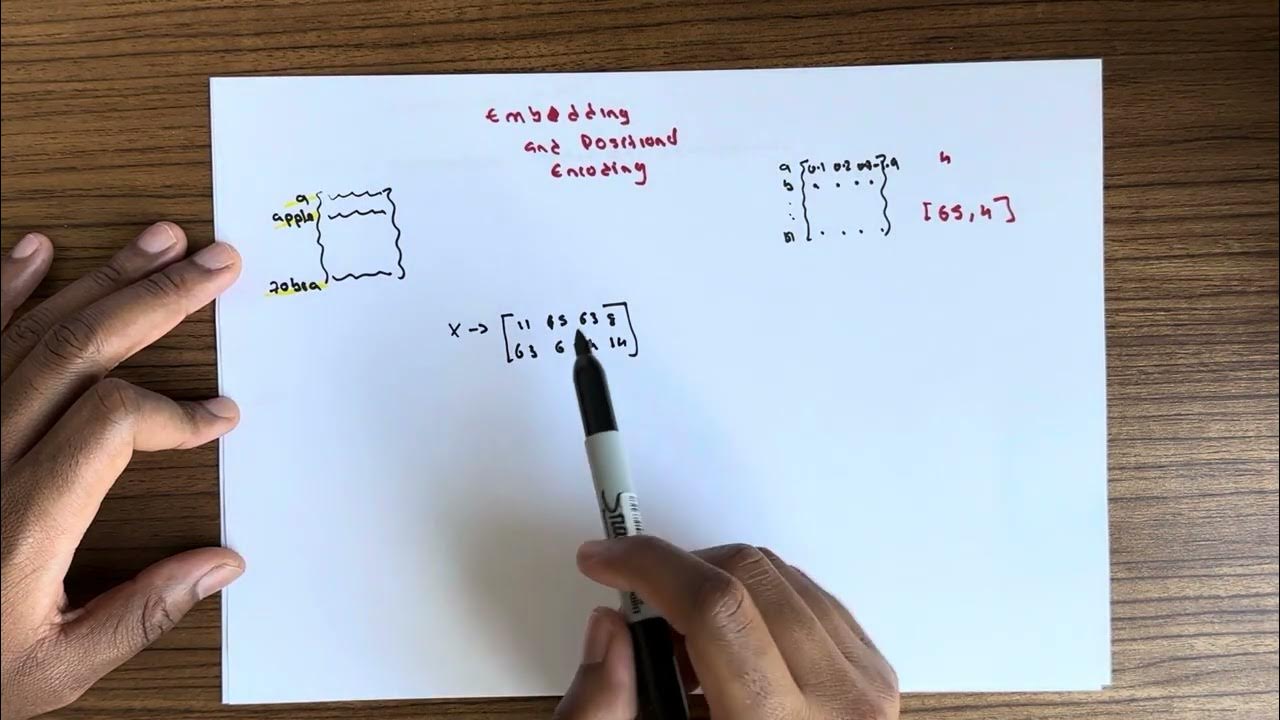 Embedding
and Positional
Encoding
a
apple
zobra
a [0.1 0.2
b
4
[65, 4]
X → [11 45 63 8
63 6 14]